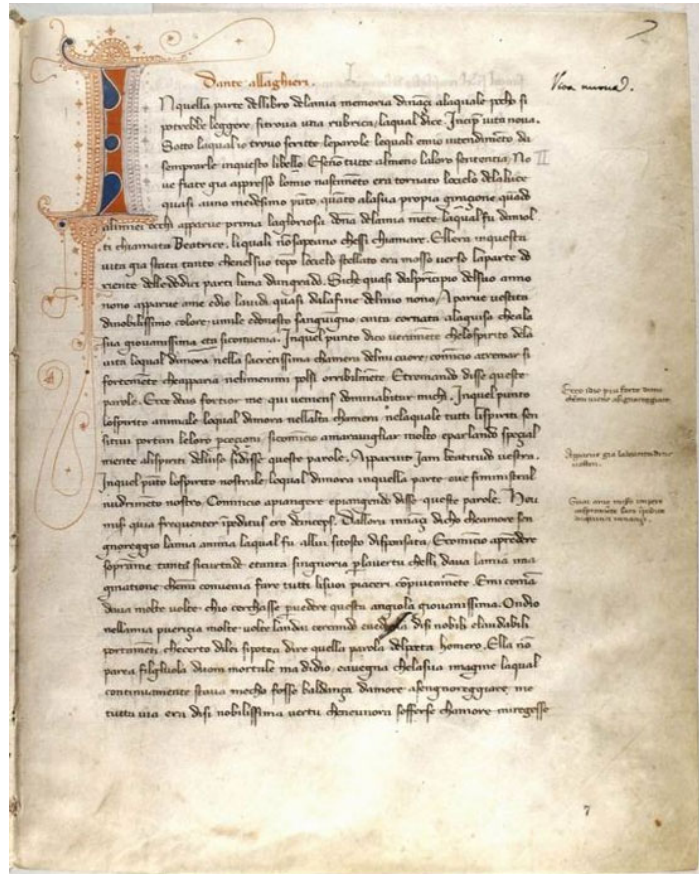 Dante allaghieri.
Vita nuova.
N quella parte dellibro dela mia memoria dinãçi alaquale pocho si
potrebbe leggere, sitrova una rubrica, laqual dice. Incipit vita nova.
Sotto laqual io trovo scritte leparole lequali emio intendimẽto di
semprarle inquesto libello. E senõ tutte almeno laloro sententia. No
II
ve fiate gia appresso lomio nascimẽto era tornato locielo delaluce
quasi auno medesimo pũto, quãto alasua propia giraçione, quãdo
alimiei occhi apparve prima lagloriosa dõna dela mia mẽte, laqual fu da mol
ti chiamata Beatrice, liquali nõ sapeano chessi chiamare. Ellera inquesta
vita gia stata tanto chenelsuo tẽpo locielo stellato era mosso verso laparte do
riente delledodici parti luna dungrado. Siche quasi dalprĩcipio delsuo anno
nono apparve ame edio lavidi quasi dalafine delmio nono. Aparve vestita
dinobilissimo colore, umile edonesto sanguigno, cinta eornata alaguisa cheala
sua giovanissima eta siconvenia. Inquel punto dico veramẽte chelospirito dela
vita loqual dimora nella sacretissima chamera delmi cuore, comĩcio atremar si
fortemẽte cheapparia nelimenimi polsi orribilmẽte. Etremando disse queste
parole. Ecce deus fortior me qui veniens dominabitur michi. Inquel punto
lospirito animale loqual dimora nellalta chamera nelaquale tutti lispiriti sen
sitivi portan leloro
sicomĩcio amaravigliar molto eparlando spezial
mente alispiriti delviso sidisse queste parole. Apparuit jam beatitudo vestra.
Inquel pũto lospirito
loqual dimora inquella parte ove siministral
nudrimẽto nostro. Comincio apiangere epiangendo disse queste parole. Heu
miser quia frequenter ĩpeditus ero deinceps. Dallora inãçi dicho cheamore sen
gnoreggio lamia anima laqual fu allui sitosto disponsata. Ecomĩcio aprẽdere
soprame tanta sicurtade etanta singnoria p lavertu chelli dava lamia ima
ginatione chemi convenia fare tutti lisuoi piaceri cõpiutamẽte. Emi comã
dava molte volte chio cerchasse pvedere questa angiola giovanissima. Ondio
nellamia puerizia molte volte landai cercando
disi nobili elaudabili
portamẽti, checerto dilei sipotea dire quella parola delpoeta homero. Ella nõ
parea figliuola duom mortale ma didio, eavegna chelasua imagine laqual
continuamente stava mecho fosse baldança damore asengnoreggiare me
tutta via era disi nobilissima vertu cheneunora sofferse chamore miregesse
7